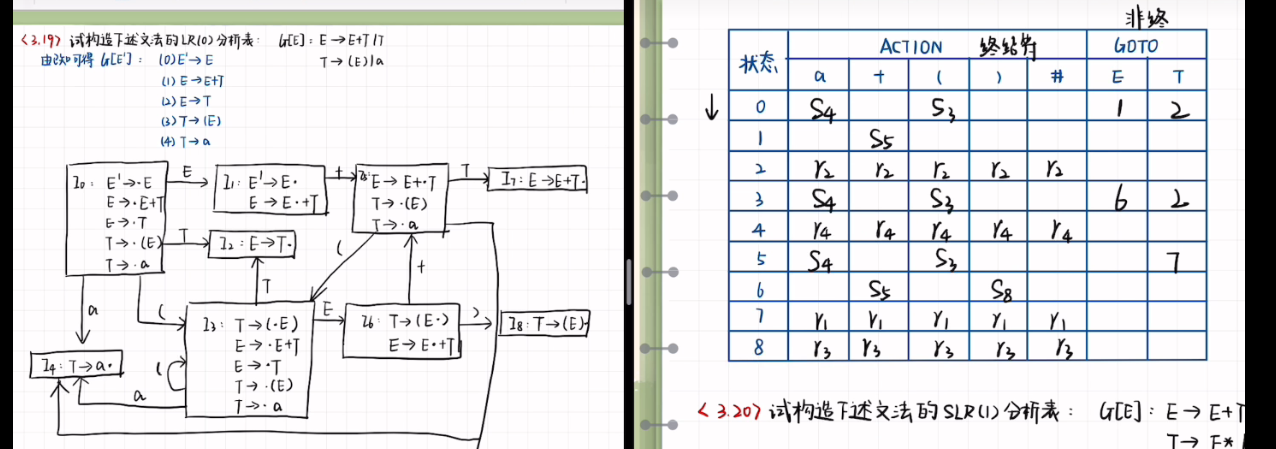 <3.19> 试构造下述文法的LR(0)分析表: G[E]: E→E+T|T
T→(E)|a
由已知可得 G[E']: (0) E'→E
(1) E→E+T
(2) E→T
(3) T→(E)
(4) T→a
I0: E'→·E
E→·E+T
E→·T
T→·(E)
T→·a
E
I1: E'→E·
E→E·+T
+
I5: E→E+·T
T→·(E)
T→·a
T
I7: E→E+T·
T
I2: E→T·
(
T
+
a
(
I3: T→(·E)
E→·E+T
E→·T
T→·(E)
T→·a
E
I6: T→(E·)
E→E·+T
)
I8: T→(E)·
I4: T→a·
(
a
非终
状态 ACTION 终结符 GOTO
a + ( ) # E T
↓ 0 S4 S3 1 2
1 S5
2 r2 r2 r2 r2 r2
3 S4 S3 6 2
4 r4 r4 r4 r4 r4
5 S4 S3 7
6 S5 S8
7 r1 r1 r1 r1 r1
8 r3 r3 r3 r3 r3
<3.20> 试构造下述文法的SLR(1)分析表: G[E]: E→E+T